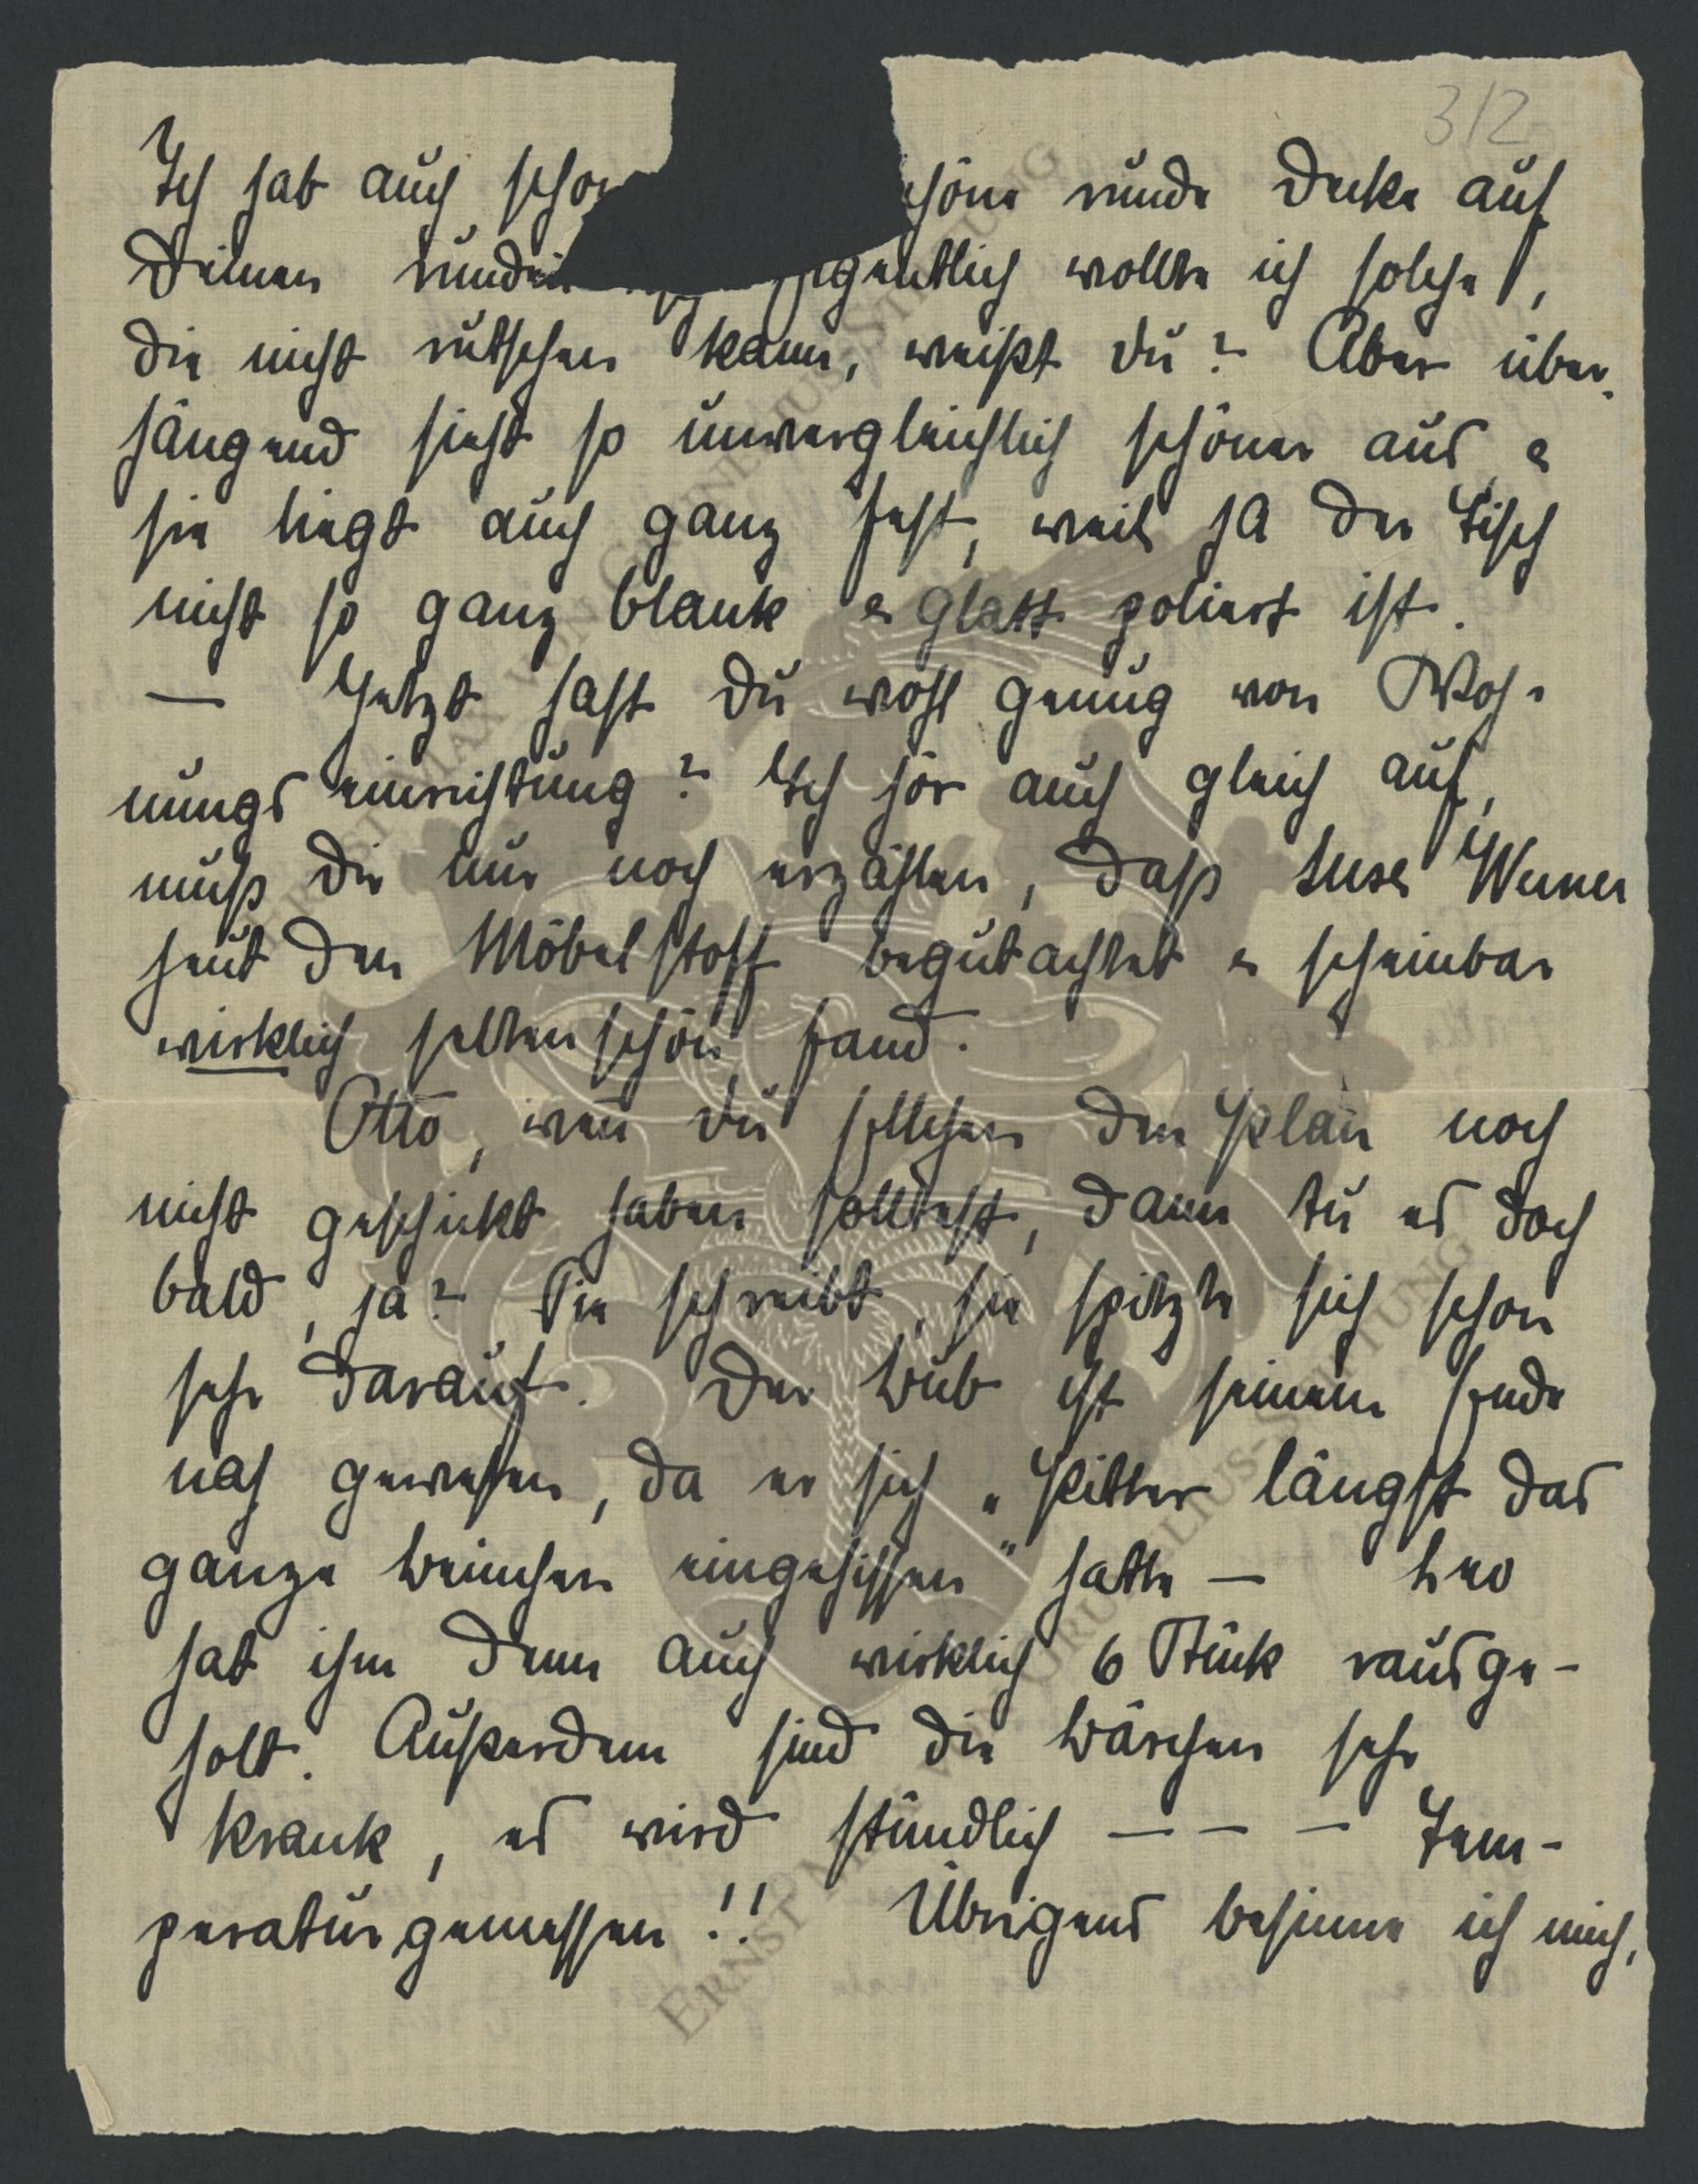 3/2
Ich hab auch schon schöne runde Decke auf
Deinen runden Eigentlich wollte ich solche,
die nicht rutschen kann, weißt Du? Aber über-
hängend sieht so unvergleichlich schöner aus &
sie liegt auch ganz fest, weil ja der Tisch
nicht so ganz blank & glatt poliert ist.
— Jetzt hast Du wohl genug von Woh-
nungseinrichtung? Ich hör auch gleich auf,
muß Dir nur noch erzählen, daß Suse
heut den Möbelstoff begutachtet & scheinbar
wirklich selten schön fand.
Otto, wenn Du den Plan noch
nicht geschickt haben solltest, dann tu es doch
bald, ja? Sie schreibt, sie spitzte sich schon
sehr darauf. Der Bub ist seinem Ende
nah gewesen, da er sich „Splitter längst das
ganze Beinchen eingesissen" hatte — Leo
hat ihm denn auch wirklich 6 Stück rausge-
holt. Außerdem sind die Bärchen sehr
krank, es wird stündlich — — — Tem-
peratur gemessen!! Übrigens besinne ich mich,
ERNST MAX VON GRUNELIUS-STIFTUNG
ERNST MAX VON GRUNELIUS-STIFTUNG